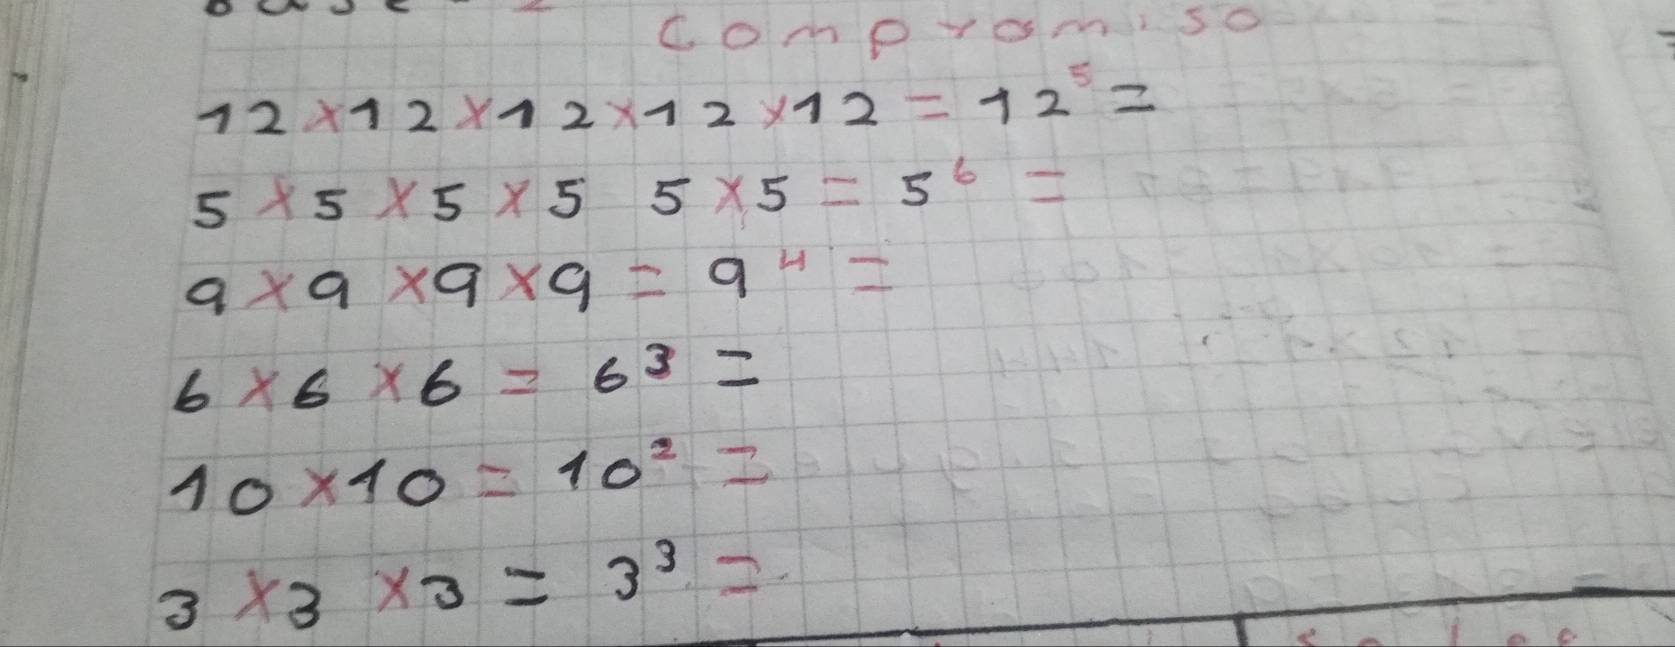 Compromiso
12 × 12 × 12 × 12 × 12 = 12⁵ =
5 × 5 × 5 × 5 5 × 5 = 5⁶ =
9 × 9 × 9 × 9 = 9⁴ =
6 × 6 × 6 = 6³ =
10 × 10 = 10² =
3 × 3 × 3 = 3³ =